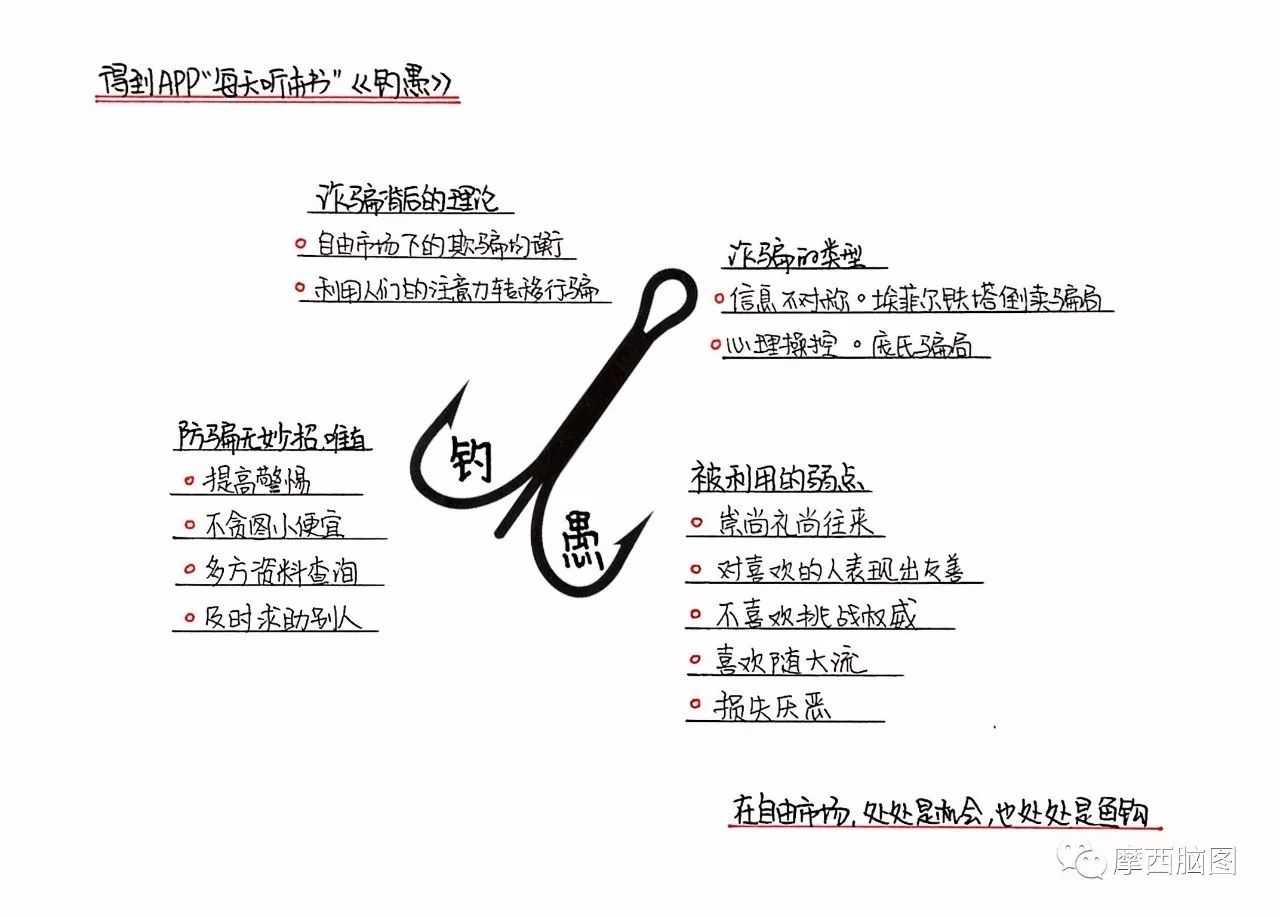 得到APP"每天听本书"《钓愚》
诈骗背后的理论
自由市场下的欺骗均衡
利用人们的注意力转移行骗
诈骗的类型
信息不对称。埃菲尔铁塔倒卖骗局
心理操控。庞氏骗局
防骗无妙招,唯有
提高警惕
不贪图小便宜
多方资料查询
及时求助别人
钓
愚
被利用的弱点
崇尚礼尚往来
对喜欢的人表现出友善
不喜欢挑战权威
喜欢随大流
损失厌恶
在自由市场,处处是机会,也处处是鱼钩
摩西脑图